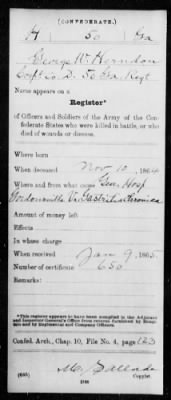 (CONFEDERATE.)
H 50 Ga
George W. Herndon
Co. D. 50 Ga Regt
Name appears on a
Register*
of Officers and Soldiers of the Army of the Con-
federate States who were killed in battle, or who
died of wounds or disease.
Where born
When deceased Nov 10, 1864
Where and from what cause Gen. Hosp
Gordonsville Va Gastritis Chronica
Amount of money left
Effects
In whose charge
When received Jan 9, 1865
Number of certificate 650
Remarks:
*This register appears to have been compiled in the Adjutant
and Inspector General's Office from returns furnished by Hospi-
tals and by Regimental and Company Officers.
Confed. Arch., Chap. 10, File No. 4, page 123
(635)
Copyist.